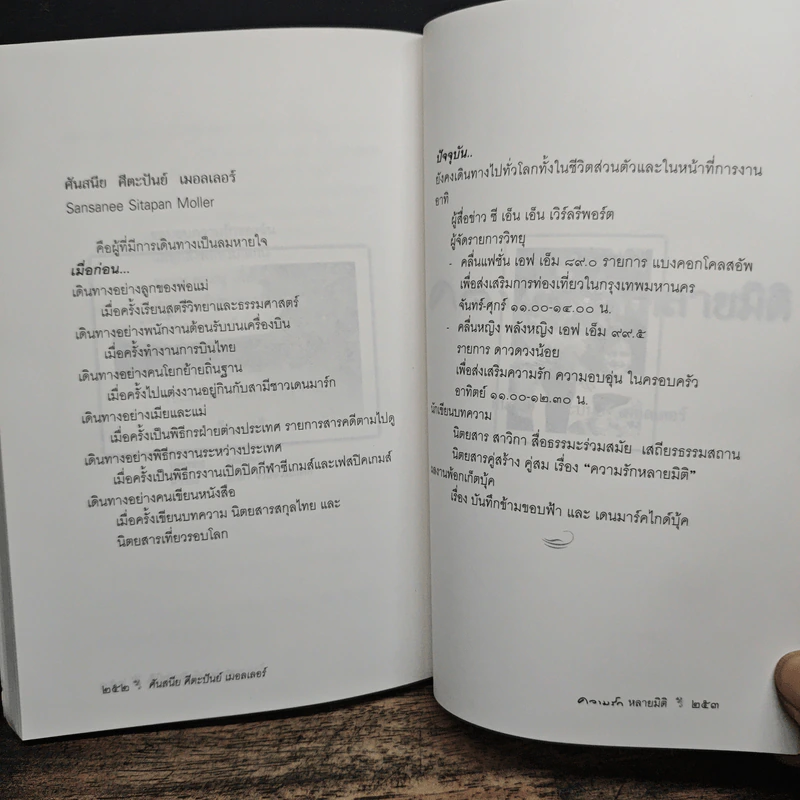 ศันสนีย ศีตะปันย์ เมอลเลอร์
Sansanee Sitapan Moller
คือผู้ที่มีการเดินทางเป็นลมหายใจ
เมื่อก่อน...
เดินทางอย่างลูกของพ่อแม่
เมื่อครั้งเรียนสตรีวิทยาและธรรมศาสตร์
เดินทางอย่างพนักงานต้อนรับบนเครื่องบิน
เมื่อครั้งทำงานการบินไทย
เดินทางอย่างคนโยกย้ายถิ่นฐาน
เมื่อครั้งไปแต่งงานอยู่กินกับสามีชาวเดนมาร์ก
เดินทางอย่างเมียและแม่
เมื่อครั้งเป็นพิธีกรฝ่ายต่างประเทศ รายการสารคดีตามไปดู
เดินทางอย่างพิธีกรงานระหว่างประเทศ
เมื่อครั้งเป็นพิธีกรงานเปิดปิดกีฬาซีเกมส์และเฟสปิคเกมส์
เดินทางอย่างคนเขียนหนังสือ
เมื่อครั้งเขียนบทความ นิตยสารสกุลไทย และ
นิตยสารเที่ยวรอบโลก
๒๕๒ ศันสนีย ศีตะปันย์ เมอลเลอร์
ปัจจุบัน..
ยังคงเดินทางไปทั่วโลกทั้งในชีวิตส่วนตัวและในหน้าที่การงาน
อาทิ
ผู้สื่อข่าว ซี เอ็น เอ็น เวิร์ลรีพอร์ต
ผู้จัดรายการวิทยุ
- คลื่นแฟชั่น เอฟ เอ็ม ๘๙.๐ รายการ แบงคอกโคลสอัพ
เพื่อส่งเสริมการท่องเที่ยวในกรุงเทพมหานคร
จันทร์-ศุกร์ ๑๑.๐๐-๑๔.๐๐ น.
- คลื่นหญิง พลังหญิง เอฟ เอ็ม ๙๙.๕
รายการ ดาวดวงน้อย
เพื่อส่งเสริมความรัก ความอบอุ่น ในครอบครัว
อาทิตย์ ๑๑.๐๐-๑๒.๓๐ น.
นักเขียนบทความ
นิตยสาร สาวิกา สื่อธรรมะร่วมสมัย เสถียรธรรมสถาน
นิตยสารคู่สร้าง คู่สม เรื่อง "ความรักหลายมิติ"
ผลงานพ้อกเก็ตบุ้ค
เรื่อง บันทึกข้ามขอบฟ้า และ เดนมาร์คไกด์บุ้ค
ความรัก หลายมิติ ๒๕๓